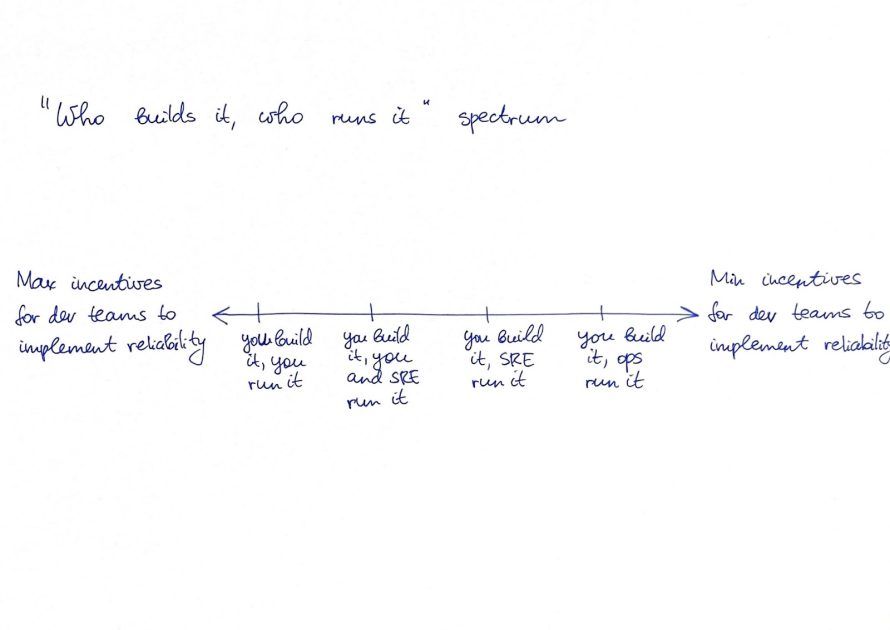 "Who builds it, who runs it" spectrum
Max incentives
for dev teams to
implement reliability
you build
it, you
run it
you build
it, you
and SRE
run it
you build
it, SRE
run it
you build
it, ops
run it
Min incentives
for dev teams to
implement reliability